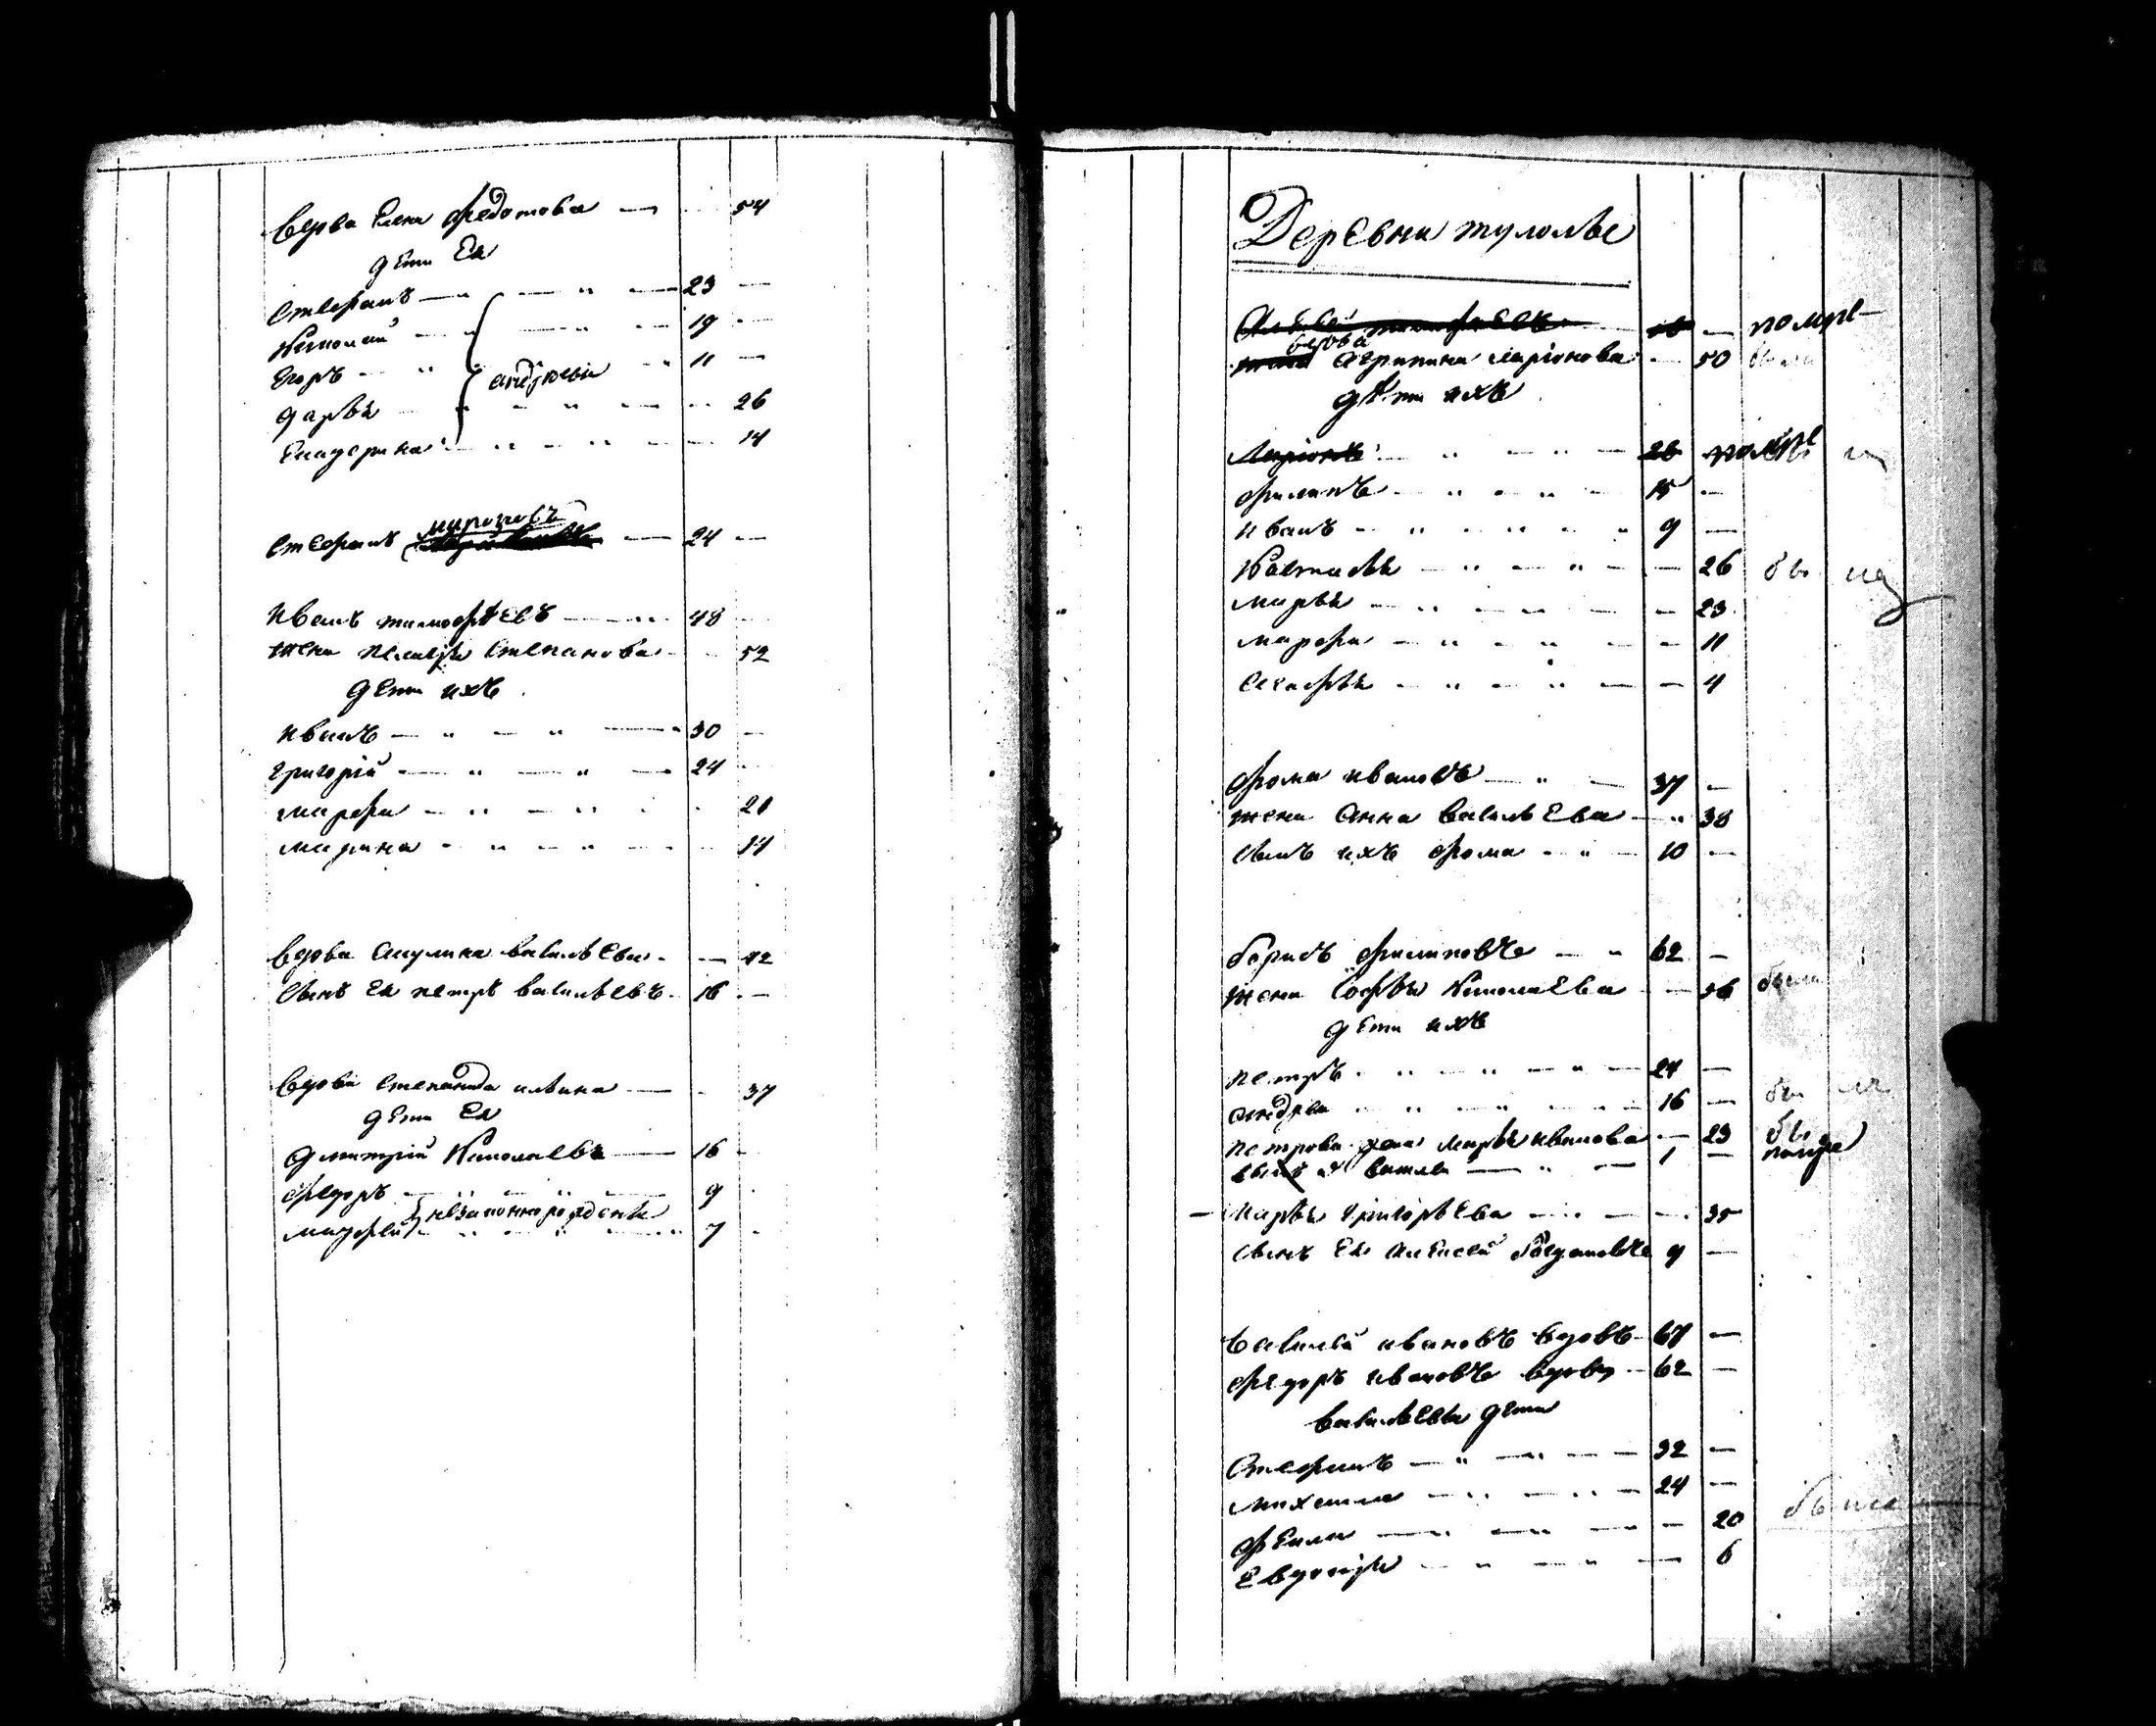 вдова Елена федотова — 54
дети Ея
Стефанъ — 23 —
Николай — 19 —
Егоръ — андреевы — 11 —
дарья — 26
Екатерина — 14
мироновъ
Стефанъ — 24 —
иванъ тимофѣевъ — 48
жена пелагея Степанова — 52
дети ихъ
иванъ — 30 —
григорій — 24
марфа — 20
марина — 14
вдова акулина васильева — 42
сынъ Ея петръ васильевъ — 16 —
вдова степанида ильина — 37
дети Ея
дмитрій Николаевъ — 16 —
федоръ — 9
незаконнорожденны
матфей — 7
Деревня тулолье
Алексей тимофѣевъ — помре
вдова
жена агрипина ларіонова — 50
дѣти ихъ
Ларіонъ — 26 помре
филипъ — 15 —
иванъ — 9 —
Настасья — 26
марья — 23
марфа — 11
Агафья — 4
фома ивановъ — 37 —
жена Анна васильева — 38
сынъ ихъ фома — 10 —
борисъ филиповъ — 62 —
жена Софья Николаева — 56 была
дети ихъ
петръ — 24 —
андрей — 16 —
петрова жена марья иванова — 23
сынъ василей — 1 — помре
марья григорьева — 35
сынъ Ея Алексей богдановъ 9 —
василей ивановъ вдовъ 67 —
федоръ ивановъ вдовъ 62 —
васильевы дети
Стефанъ — 32 —
михаила — 24 —
фекла — 20
Евдокія — 6